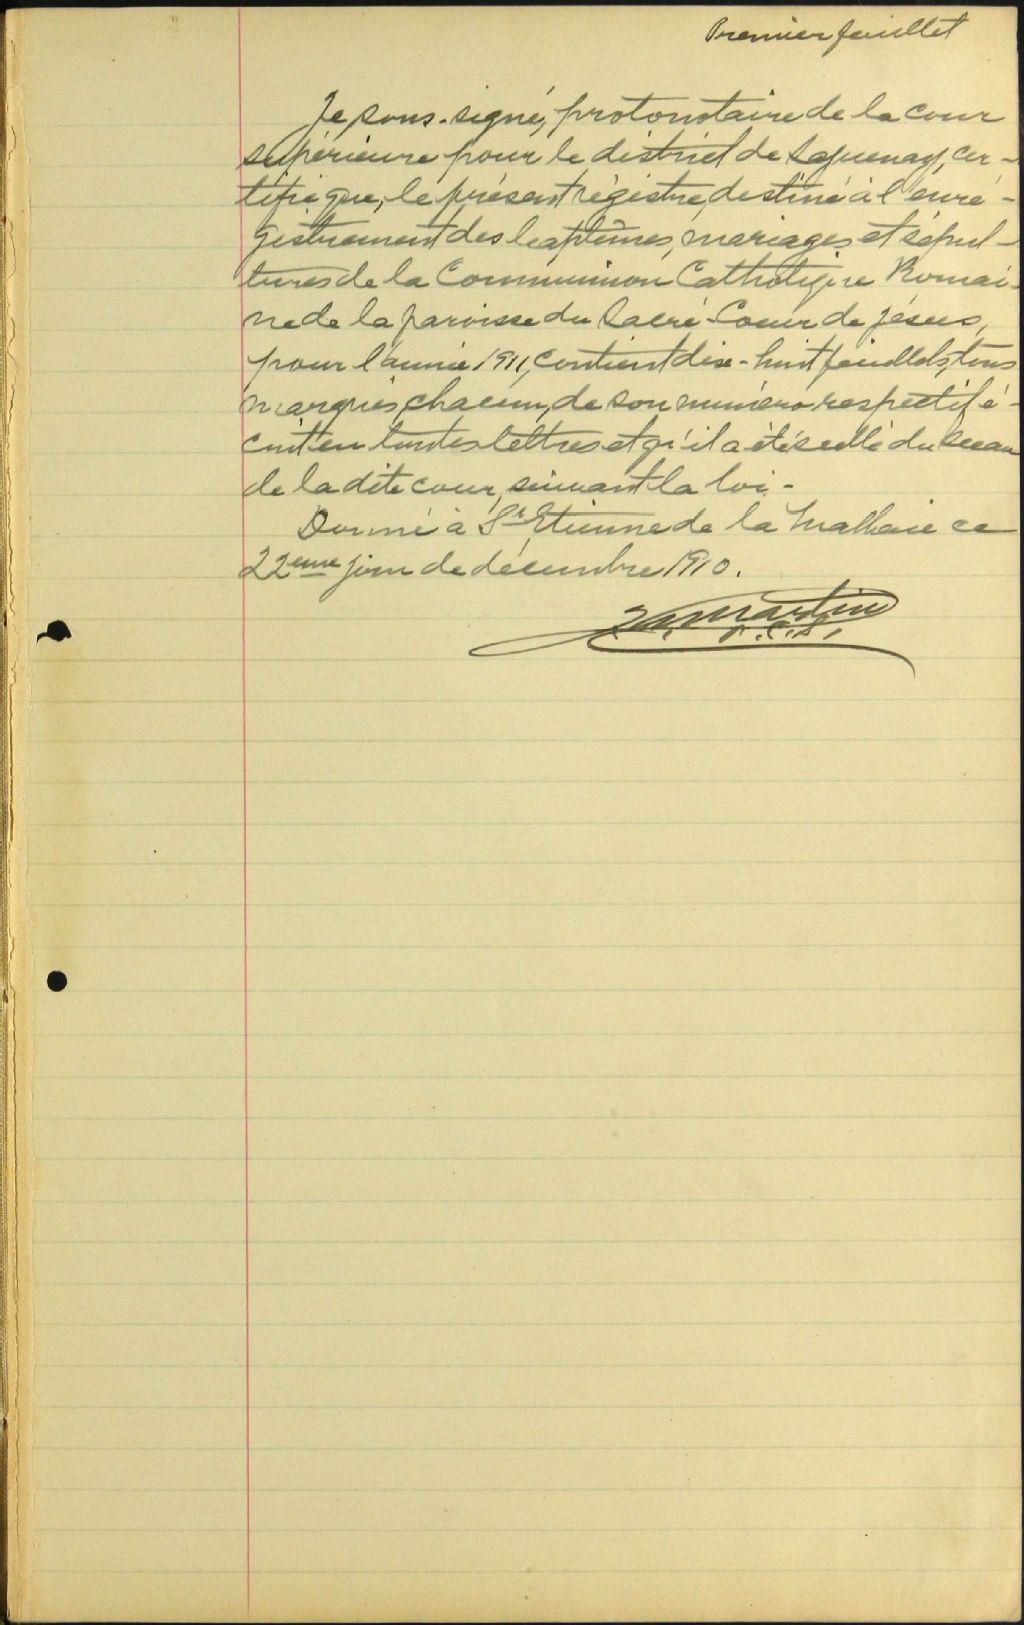 Premier feuillet
Je sous-signé, protonotaire de la cour
supérieure pour le district de Saguenay, cer-
tifie que, le présent régistre, destiné à l'enré-
gistrement des baptêmes, mariages et sépul-
tures de la Communion Catholique Romai-
ne de la paroisse du Sacré-Coeur de Jésus,
pour l'année 1911, contient dix-huit feuillets, tous
marqués, chacun, de son numéro respectif é-
crit en toutes lettres et qu'il a été scellé du sceau
de la dite cour, suivant la loi.-
Donné à St Etienne de la Malbaie ce
22ème jour de décembre 1910.
Martin
P.C.S.